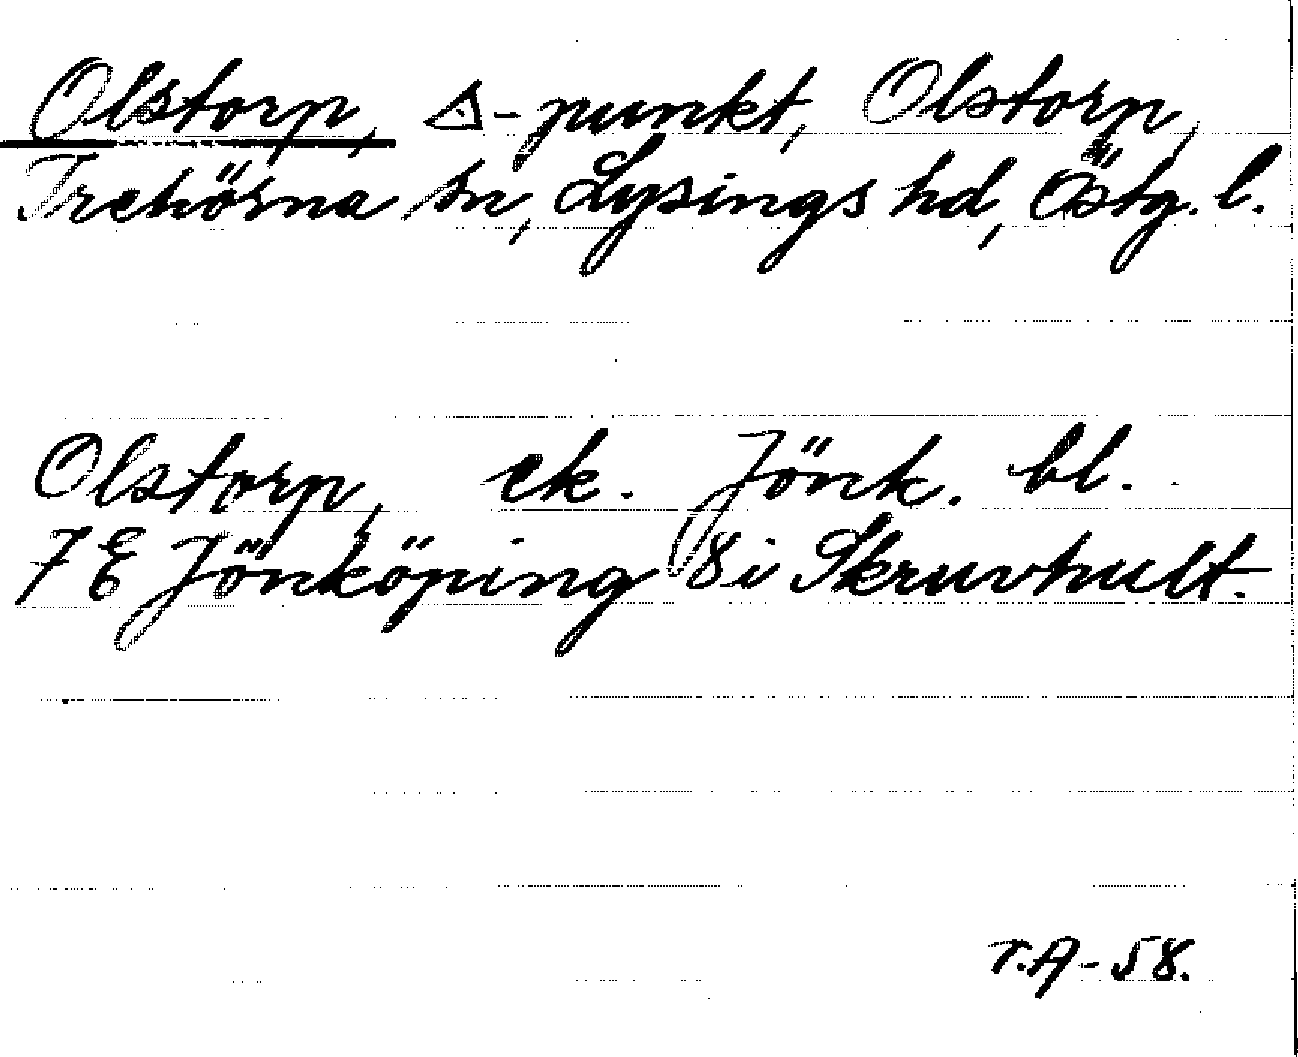 Olstorp, △-punkt, Olstorp,
Trehörna sn, Lysings hd, Östg. l.
Olstorp, ek. Jönk. bl.
7 E Jönköping 8i Skruvhult.
T.A-58.